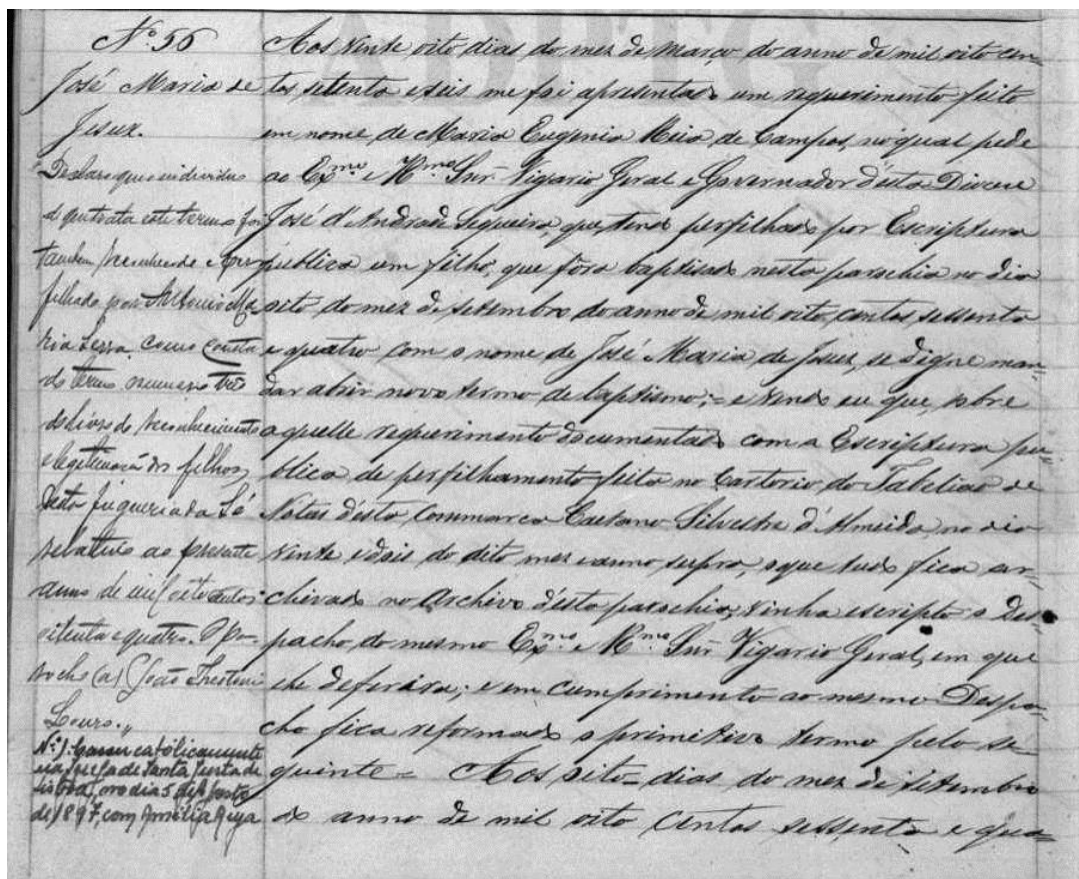 Nº 56
José Maria de
Jesus.
Declaro que o individuo
de que trata este termo foi
tambem reconhecido e per
filhado por Antonio Ma-
ria Serra como consta
do termo numero tres
do livro do reconhecimento
e legitimação dos filhos,
desta freguezia da Sé
relativo ao presente
anno de mil oitocentos
oitenta e quatro. O pa-
rocho (a) João Theotonio
Louro.,,
Nº 1: Casou catòlicamente
na freg.ª de Santa Justa de
Lisboa, no dia 5 de
de 1897, com Amélia
Aos vinte oito dias do mez de Março do anno de mil oito cen=
tos, setenta e seis me foi apresentado um requerimento feito
em nome de Maria Eugenia Meia de Campos, no qual pede
ao Exmo e Rmo Snr Vigario Geral e Governador d'esta Diocese
José d'Andrade Sequeira, que tendo perfilhado por Escriptura
publica um filho, que fôra baptisado nesta parochia no dia
oito do mez de setembro do anno de mil oito centos sessenta
e quatro com o nome de José Maria de Jesus, se digne man=
dar abrir novo termo de baptismo;= e vendo eu que, sobre
aquelle requerimento documentado com a Escriptura pu=
blica de perfilhamento feita no Cartorio do Tabelião de
Notas d'esta Commarca Caetano Silvestre d'Almeida, no dia
vinte e dois do dito mez e anno supra, o que tudo fica ar=
chivado no Archivo d'esta parochia, vinha escripto o Des=
pacho, do mesmo Exmo e Rmo Snr Vigario Geral, em que
lhe deferira; e em cumprimento ao mesmo Despa=
cho fica reformado o primitivo termo pelo se
guinte= Aos oito= dias do mez de setembro
do anno de mil oito centos sessenta e qua=